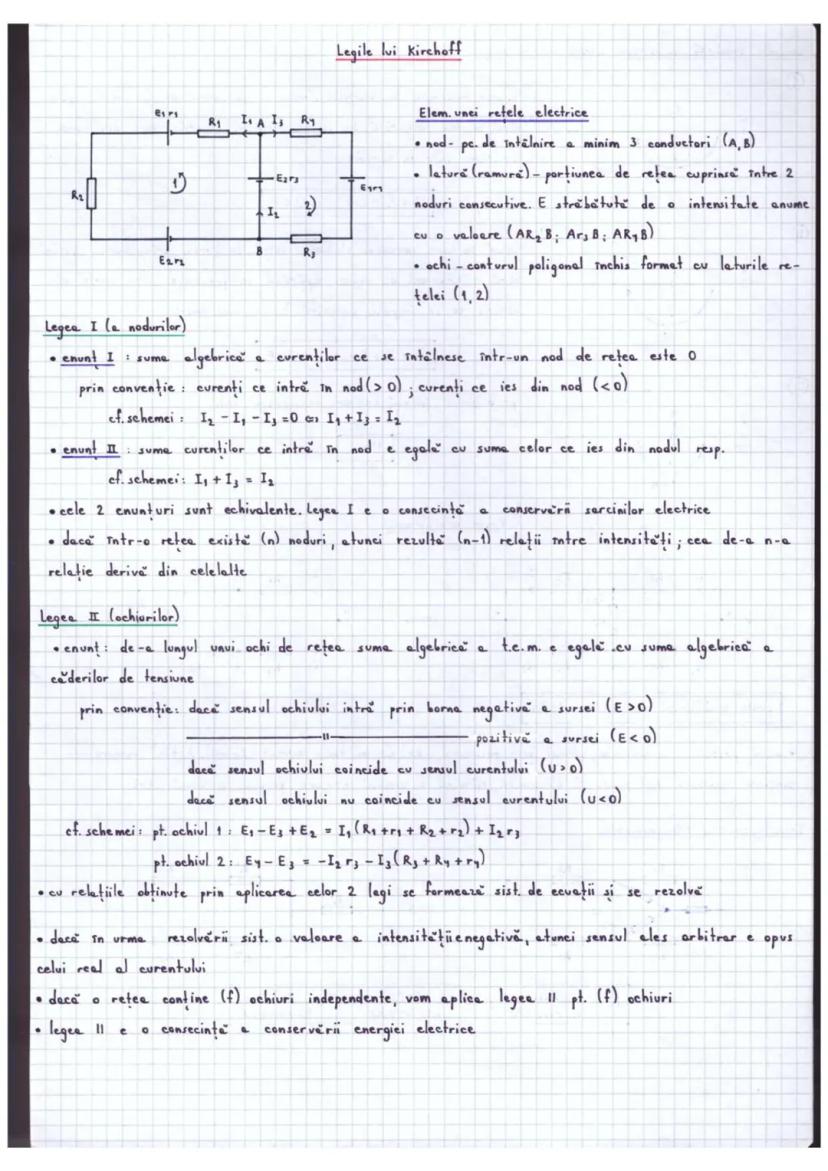 Legile lui Kirchoff
E1 r1
R1 I1 A I3 R4
E2r3
E4r4
R2
1)
2)
I2
E2r2
B
R3
Elem. unei rețele electrice
• nod - pc. de întâlnire a minim 3 conductori (A, B)
• latură (ramură) - porțiunea de rețea cuprinsă între 2
noduri consecutive. E străbătută de o intensitate anume
cu o valoare (AR2B; Ar3B; AR4B)
• ochi - conturul poligonal închis format cu laturile re-
țelei (1, 2)
Legea I (a nodurilor)
• enunț I : suma algebrică a curenților ce se întâlnesc într-un nod de rețea este 0
prin convenție : curenți ce intră în nod (> 0) ; curenți ce ies din nod (< 0)
cf. schemei : I2 - I1 - I3 = 0 ⇔ I1 + I3 = I2
• enunț II : suma curenților ce intră în nod e egală cu suma celor ce ies din nodul resp.
cf. schemei: I1 + I3 = I2
• cele 2 enunțuri sunt echivalente. Legea I e o consecință a conservării sarcinilor electrice
• dacă într-o rețea există (n) noduri, atunci rezultă (n-1) relații între intensități ; cea de-a n-a
relație derivă din celelalte
Legea II (ochiurilor)
• enunț : de-a lungul unui ochi de rețea suma algebrică a t.e.m. e egală cu suma algebrică a
căderilor de tensiune
prin convenție: dacă sensul ochiului intră prin borna negativă a sursei (E > 0)
—————"————— pozitivă a sursei (E < 0)
dacă sensul ochiului coincide cu sensul curentului (U > 0)
dacă sensul ochiului nu coincide cu sensul curentului (U < 0)
cf. schemei: pt. ochiul 1 : E1 - E3 + E2 = I1 (R1 + r1 + R2 + r2) + I2 r3
pt. ochiul 2: E4 - E3 = -I2 r3 - I3 (R3 + R4 + r4)
• cu relațiile obținute prin aplicarea celor 2 legi se formează sist. de ecuații și se rezolvă
• dacă în urma rezolvării sist. o valoare a intensității e negativă, atunci sensul ales arbitrar e opus
celui real al curentului
• dacă o rețea conține (f) ochiuri independente, vom aplica legea II pt. (f) ochiuri
• legea II e o consecință a conservării energiei electrice